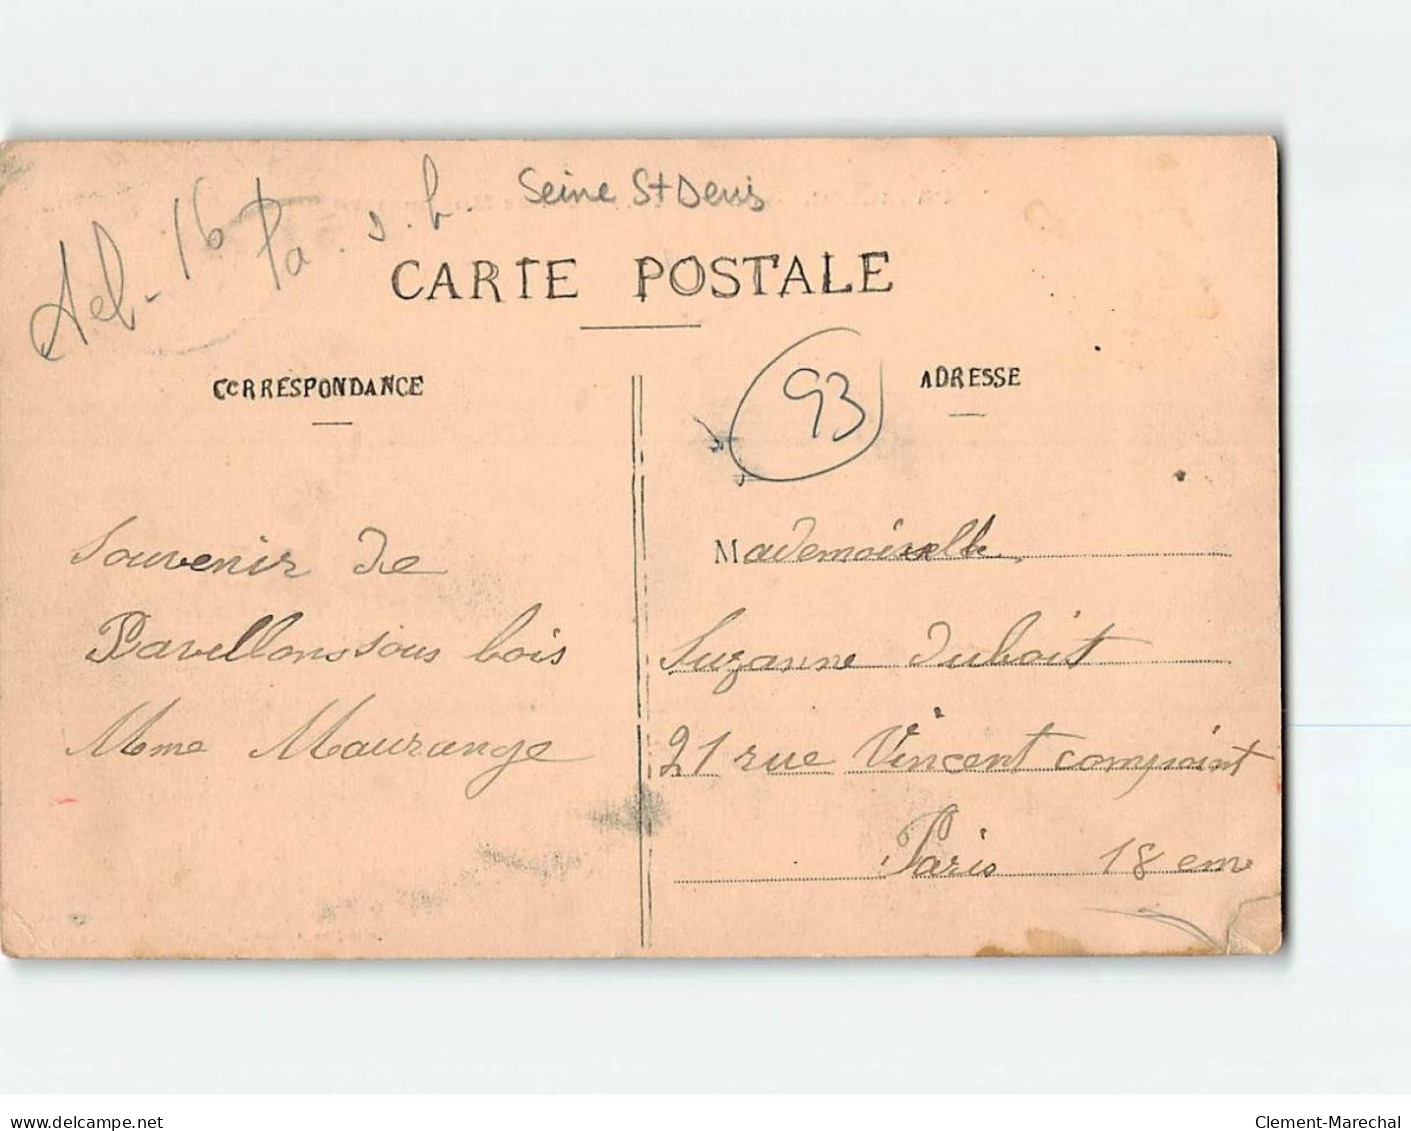 Seine St Denis
16 Pa. s. b.
CARTE POSTALE
CORRESPONDANCE
ADRESSE
93
Souvenir de
Pavellons sous bois
Mme Maurange
Mademoiselle
Suzanne Duboit
21 rue Vincent compoint
Paris 18 em
www.delcampe.net
Clement-Marechal